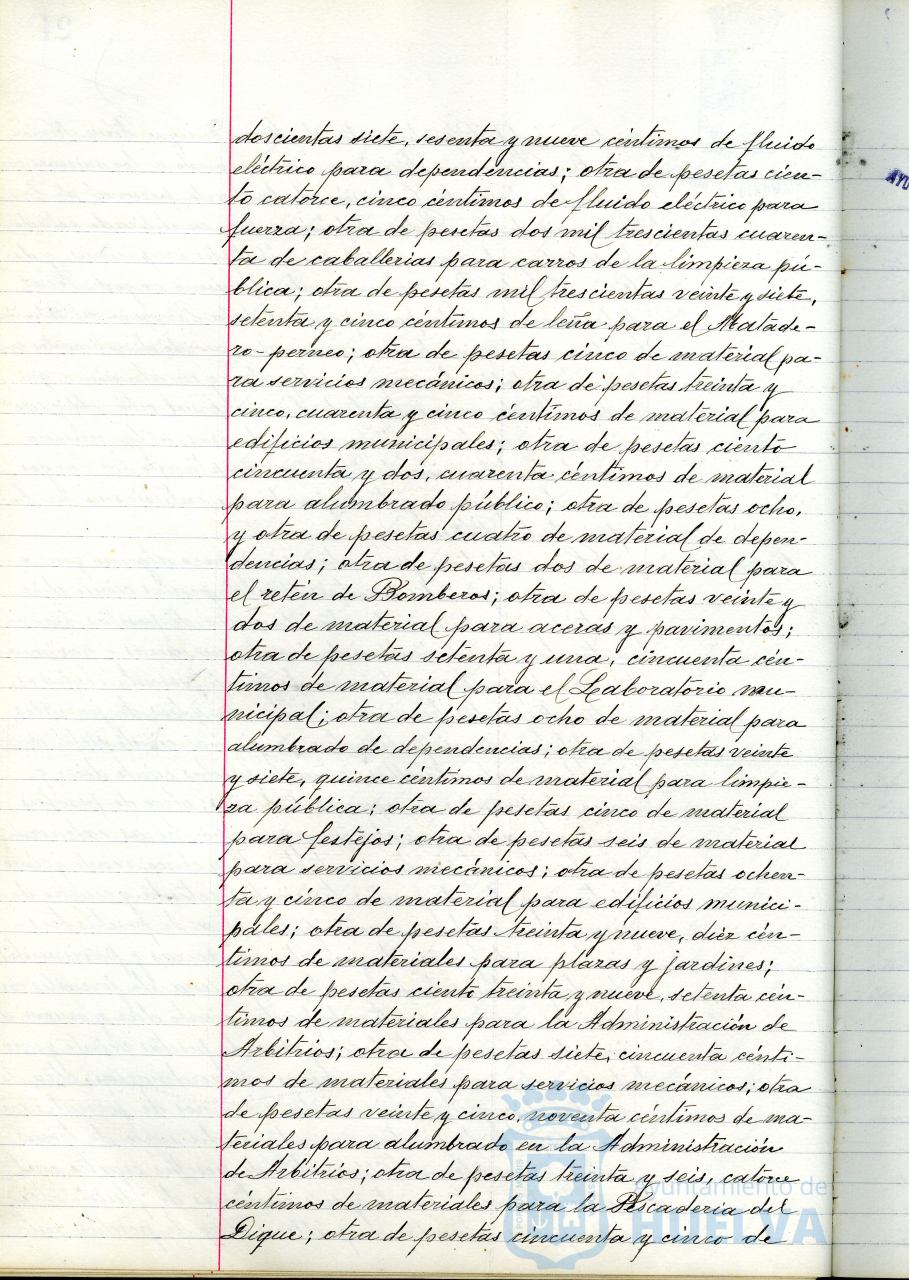 doscientas siete, sesenta y nueve céntimos de fluido
eléctrico para dependencias; otra de pesetas cien-
to catorce, cinco céntimos de fluido eléctrico para
fuerza; otra de pesetas dos mil trescientas cuaren-
ta de caballerias para carros de la limpieza pú-
blica; otra de pesetas mil trescientas veinte y siete,
setenta y cinco céntimos de leña para el Matade-
ro-perneo; otra de pesetas cinco de material pa-
ra servicios mecánicos; otra de pesetas treinta y
cinco, cuarenta y cinco céntimos de material para
edificios municipales; otra de pesetas ciento
cincuenta y dos, cuarenta céntimos de material
para alumbrado público; otra de pesetas ocho,
y otra de pesetas cuatro de material de depen-
dencias; otra de pesetas dos de material para
el retén de Bomberos; otra de pesetas veinte y
dos de material para aceras y pavimentos;
otra de pesetas setenta y una, cincuenta cén-
timos de material para el Laboratorio mu-
nicipal; otra de pesetas ocho de material para
alumbrado de dependencias; otra de pesetas veinte
y siete, quince céntimos de material para limpie-
za pública; otra de pesetas cinco de material
para festejos; otra de pesetas seis de material
para servicios mecánicos; otra de pesetas ochen-
ta y cinco de material para edificios munici-
pales; otra de pesetas treinta y nueve, diez cén-
timos de materiales para plazas y jardines;
otra de pesetas ciento treinta y nueve, setenta cén-
timos de materiales para la Administración de
Arbitrios; otra de pesetas siete, cincuenta cénti-
mos de materiales para servicios mecánicos; otra
de pesetas veinte y cinco, noventa céntimos de ma-
teriales para alumbrado en la Administración
de Arbitrios; otra de pesetas treinta y seis, catorce
céntimos de materiales para la Pescaderia del
Dique; otra de pesetas cincuenta y cinco de
Ayuntamiento de
HUELVA